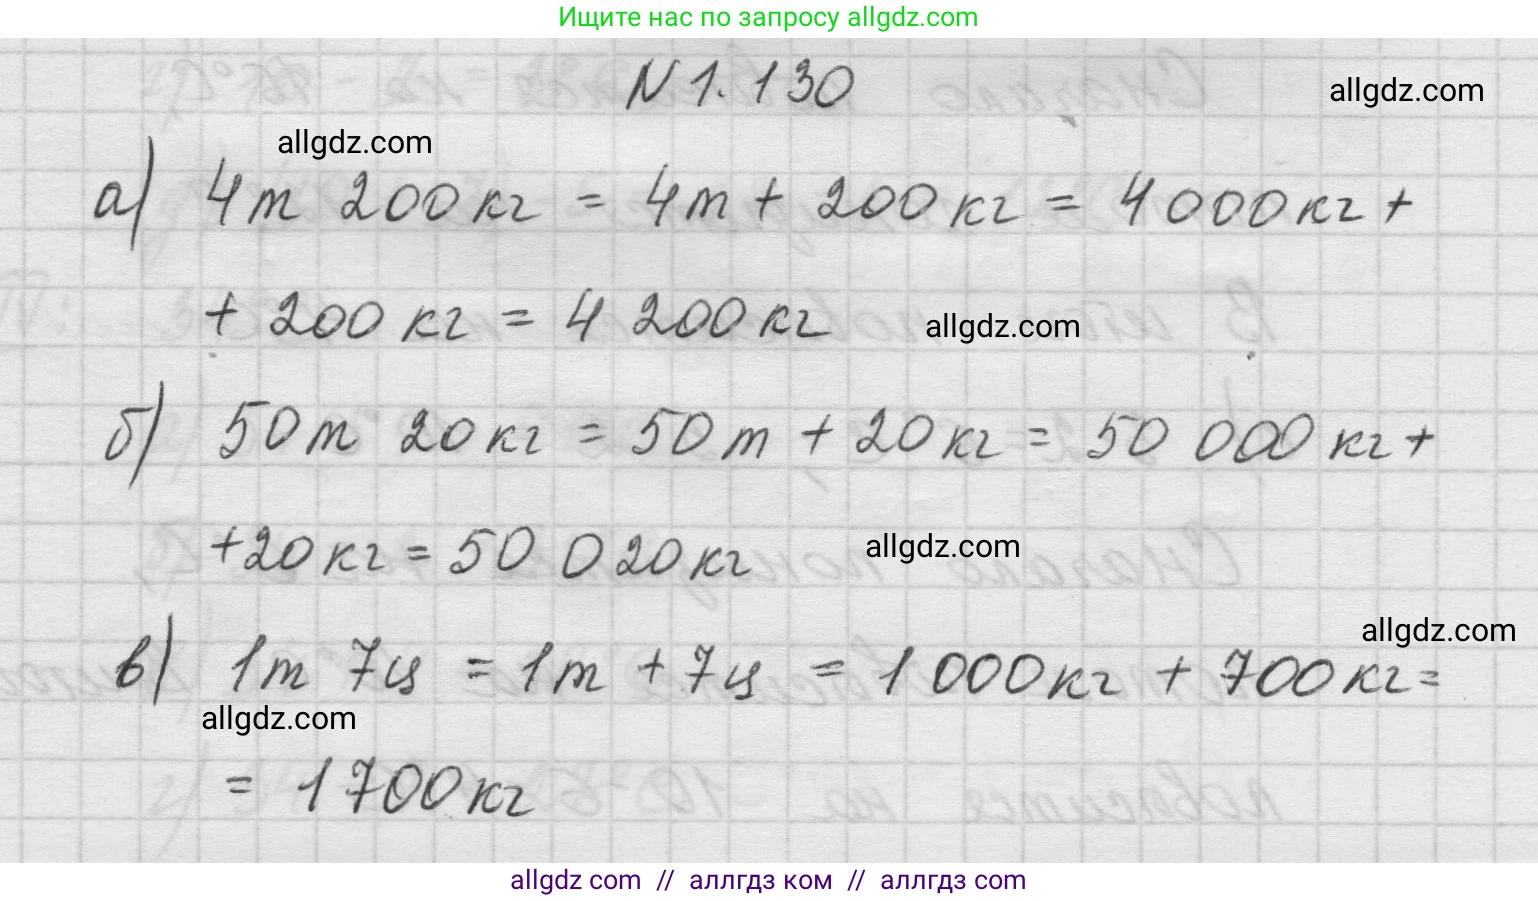 Ищите нас по запросу allgdz.com
N 1.130
allgdz.com
allgdz.com
а) 4т 200кг = 4т + 200кг = 4000кг +
+ 200 кг = 4 200 кг
allgdz.com
б) 50т 20кг = 50т + 20кг = 50 000 кг +
+20кг = 50 020кг
allgdz.com
allgdz.com
в) 1т 7ц = 1т + 7ц = 1 000кг + 700кг =
allgdz.com
= 1 700кг
allgdz com // аллгдз ком // аллгдз com